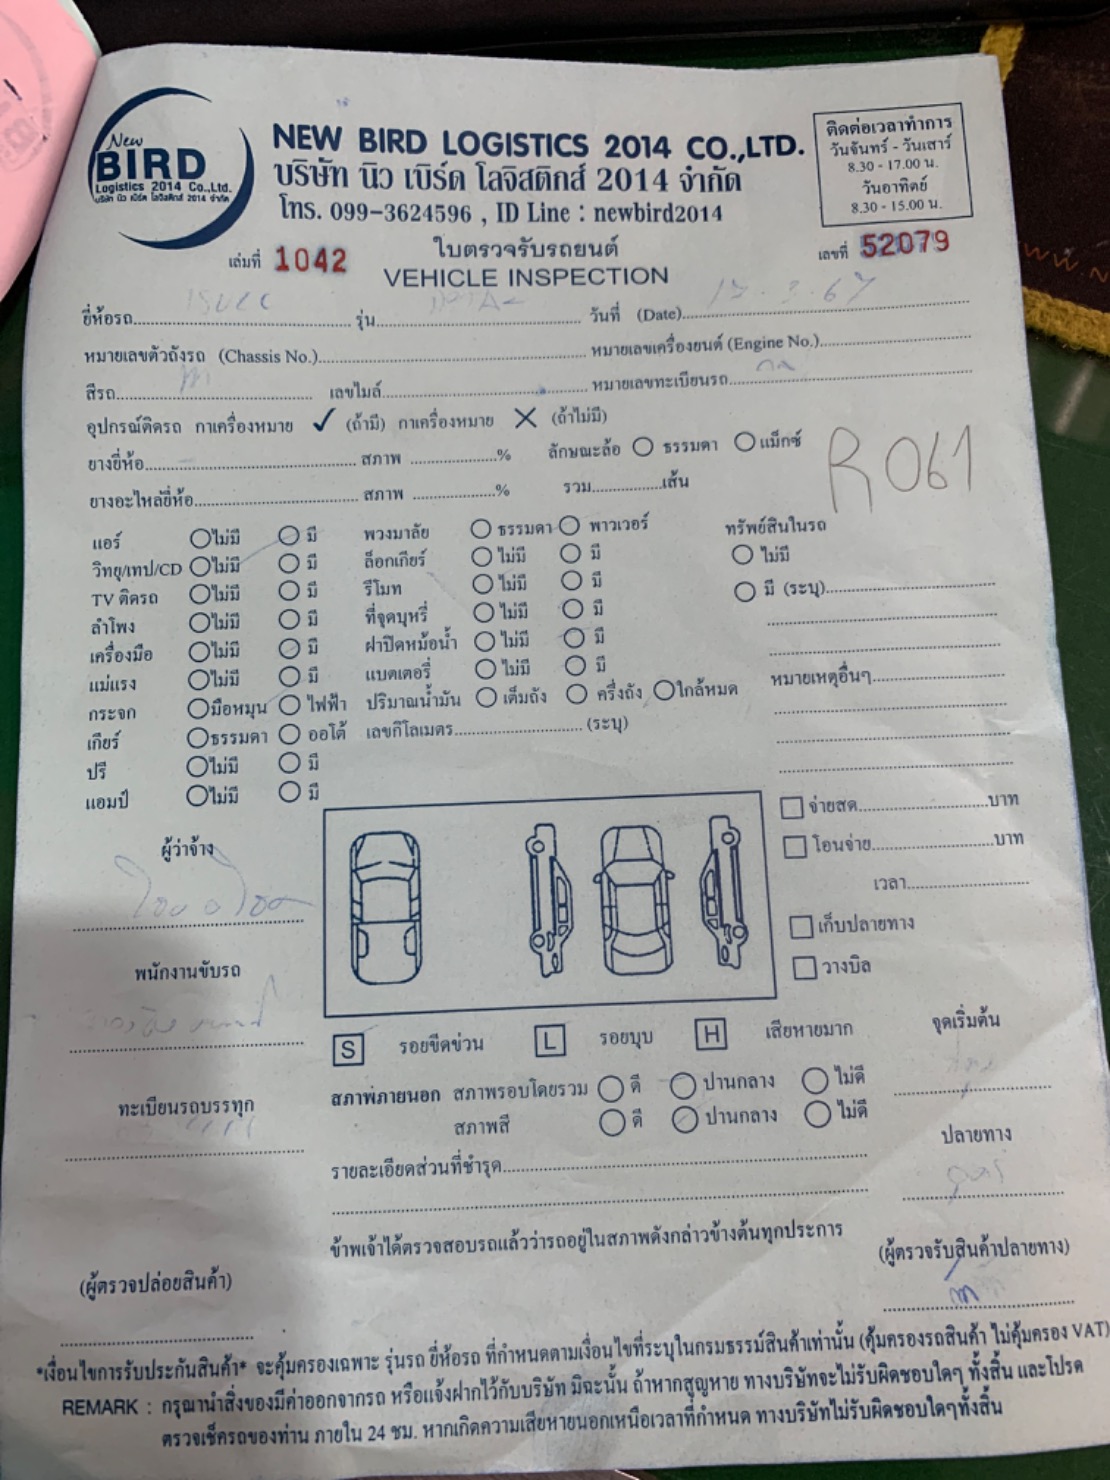 New
BIRD
Logistics 2014 Co.,Ltd.
บริษัท นิว เบิร์ด โลจิสติกส์ 2014 จำกัด
NEW BIRD LOGISTICS 2014 CO.,LTD.
บริษัท นิว เบิร์ด โลจิสติกส์ 2014 จำกัด
โทร. 099-3624596 , ID Line : newbird2014
ติดต่อเวลาทำการ
วันจันทร์ - วันเสาร์
8.30 - 17.00 น.
วันอาทิตย์
8.30 - 15.00 น.
เล่มที่ 1042
ใบตรวจรับรถยนต์
VEHICLE INSPECTION
เลขที่ 52079
ยี่ห้อรถ รุ่น วันที่ (Date)
หมายเลขตัวถังรถ (Chassis No.) หมายเลขเครื่องยนต์ (Engine No.)
สีรถ เลขไมล์ หมายเลขทะเบียนรถ
อุปกรณ์ติดรถ กาเครื่องหมาย ✓ (ถ้ามี) กาเครื่องหมาย ✕ (ถ้าไม่มี)
ยางยี่ห้อ สภาพ % ลักษณะล้อ ธรรมดา แม็กซ์
R061
ยางอะไหล่ยี่ห้อ สภาพ % รวม เส้น
แอร์ ไม่มี มี พวงมาลัย ธรรมดา พาวเวอร์ ทรัพย์สินในรถ
วิทยุ/เทป/CD ไม่มี มี ล็อกเกียร์ ไม่มี มี ไม่มี
TV ติดรถ ไม่มี มี รีโมท ไม่มี มี มี (ระบุ)
ลำโพง ไม่มี มี ที่จุดบุหรี่ ไม่มี มี
เครื่องมือ ไม่มี มี ฝาปิดหม้อน้ำ ไม่มี มี
แม่แรง ไม่มี มี แบตเตอรี่ ไม่มี มี หมายเหตุอื่นๆ
กระจก มือหมุน ไฟฟ้า ปริมาณน้ำมัน เต็มถัง ครึ่งถัง ใกล้หมด
เกียร์ ธรรมดา ออโต้ เลขกิโลเมตร (ระบุ)
ปรี ไม่มี มี
แอมป์ ไม่มี มี
จ่ายสด บาท
โอนจ่าย บาท
เวลา
เก็บปลายทาง
วางบิล
ผู้ว่าจ้าง
พนักงานขับรถ
จุดเริ่มต้น
S รอยขีดข่วน L รอยบุบ H เสียหายมาก
สภาพภายนอก สภาพรอบโดยรวม ดี ปานกลาง ไม่ดี
ทะเบียนรถบรรทุก
สภาพสี ดี ปานกลาง ไม่ดี
ปลายทาง
รายละเอียดส่วนที่ชำรุด
ข้าพเจ้าได้ตรวจสอบรถแล้วว่ารถอยู่ในสภาพดังกล่าวข้างต้นทุกประการ
(ผู้ตรวจปล่อยสินค้า)
(ผู้ตรวจรับสินค้าปลายทาง)
*เงื่อนไขการรับประกันสินค้า* จะคุ้มครองเฉพาะ รุ่นรถ ยี่ห้อรถ ที่กำหนดตามเงื่อนไขที่ระบุในกรมธรรม์สินค้าเท่านั้น (คุ้มครองรถสินค้า ไม่คุ้มครอง VAT)
REMARK : กรุณานำสิ่งของมีค่าออกจากรถ หรือแจ้งฝากไว้กับบริษัท มิฉะนั้น ถ้าหากสูญหาย ทางบริษัทจะไม่รับผิดชอบใดๆ ทั้งสิ้น และโปรด
ตรวจเช็ครถของท่าน ภายใน 24 ชม. หากเกิดความเสียหายนอกเหนือเวลาที่กำหนด ทางบริษัทไม่รับผิดชอบใดๆทั้งสิ้น